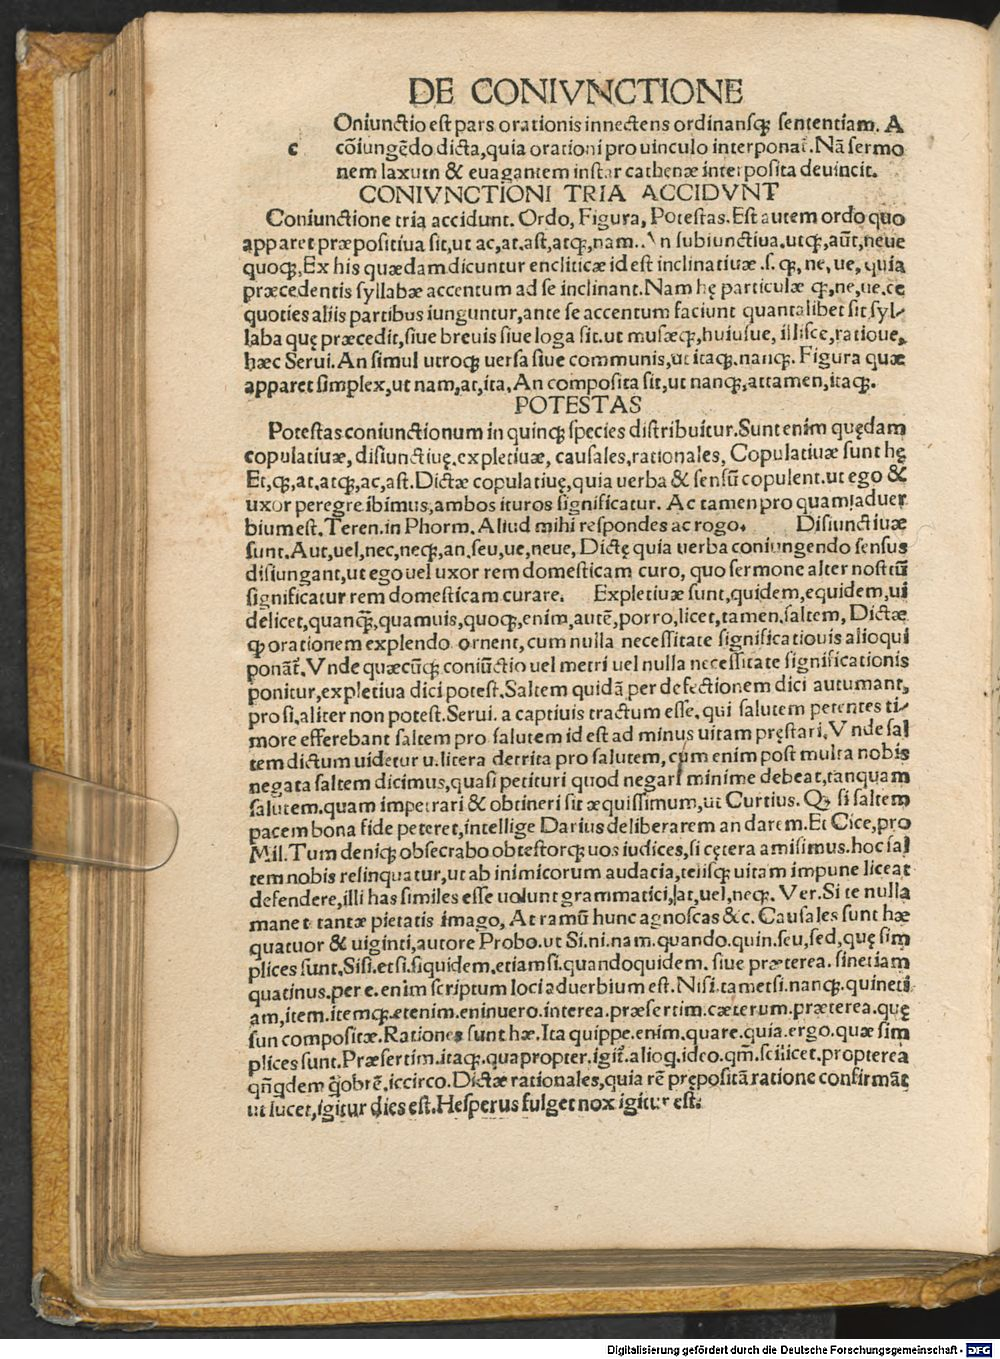 DE CONIVNCTIONE
Oniunctio est pars orationis innectens ordinansq; sententiam. A
c cōiungēdo dicta, quia orationi pro uinculo interponat̄. Nā sermo
nem laxum & euagantem instar cathenæ interposita deuincit.
CONIVNCTIONI TRIA ACCIDVNT
Coniunctione tria accidunt. Ordo, Figura, Potestas. Est autem ordo quo
apparet præpositiua sit, ut ac, at. ast, atq;, nam.. An subiunctiua. utq;, aūt, neue
quoq;, Ex his quædam dicuntur encliticæ id est inclinatiuæ .s. q;, ne, ue, quia
præcedentis syllabæ accentum ad se inclinant. Nam hę particulæ q;, ne, ue. ce
quoties aliis partibus iunguntur, ante se accentum faciunt quantalibet sit syl-
laba quę præcedit, siue breuis siue loga sit. ut musæq;, huiusue, illisce, ratioue,
hæc Serui. An simul utroq; uersa siue communis, ut itaq;. nanq;. Figura quæ
apparet simplex, ut nam, at, ita. An composita sit, ut nanq;, attamen, itaq;.
POTESTAS
Potestas coniunctionum in quinq; species distribuitur. Sunt enim quędam
copulatiuæ, disiunctiuę. expletiuæ, causales, rationales, Copulatiuæ sunt hę
Et, q;, at. atq;, ac, ast. Dictæ copulatiuę, quia uerba & sensū copulent. ut ego &
uxor peregre ibimus, ambos ituros significatur. Ac tamen pro quam aduer
bium est. Teren. in Phorm. Aliud mihi respondes ac rogo. Disiunctiuæ
sunt. Aut, uel, nec, neq;, an. seu, ue, neue, Dictę quia uerba coniungendo sensus
disiungant, ut ego uel uxor rem domesticam curo, quo sermone alter nostrū
significatur rem domesticam curare. Expletiuæ sunt, quidem, equidem, ui
delicet, quanq̄;, quamuis, quoq;, enim, autē, porro, licet, tamen, saltem, Dictæ
q; orationem explendo ornent, cum nulla necessitate significatiouis alioqui
ponāt̄. Vnde quæcūq; coniūctio uel metri uel nulla necessitate significationis
ponitur, expletiua dici potest. Saltem quidā per defectionem dici autumant,
pro si, aliter non potest. Serui. a captiuis tractum esse, qui salutem petentes ti-
more efferebant saltem pro salutem id est ad minus uitam pręstari. Vnde sal
tem dictum uidetur u. litera detrita pro salutem, cum enim post multa nobis
negata saltem dicimus, quasi petituri quod negari minime debeat, tanquam
salutem. quam impetrari & obtineri sit æquissimum, ut Curtius. Q; si saltem
pacem bona fide peteret, intellige Darius deliberarem an darem. Et Cice, pro
Mil. Tum deniq; obsecrabo obtestorq; uos iudices, si cętera amisimus. hoc sal
tem nobis relinquatur, ut ab inimicorum audacia, telisq; uitam impune liceat
defendere, illi has similes esse uolunt grammatici, at, uel, neq;. Ver. Si te nulla
manet tantæ pietatis imago, At ramū hunc agnoscas &c. Causales sunt hæ
quatuor & uiginti, autore Probo. ut Si. ni. nam. quando. quin. seu, sed, quę sim
plices sunt. Sisi. etsi. siquidem. etiamsi. quandoquidem. siue præterea. sinetiam
quatinus. per e. enim scriptum loci aduerbium est. Nisi. tametsi. nanq;. quineti
am, item. itemq;. etenim. eninuero. interea. præsertim. cæterum. præterea. quę
sun compositæ. Rationes sunt hæ. Ita quippe. enim. quare. quia. ergo. quæ sim
plices sunt. Præsertim. itaq;. quapropter. igit̄. alioq. ideo. qm̄. scilicet. propterea
qn̄qdem q̄obrē. iccirco. Dictæ rationales, quia rē prępositā ratione confirmāt
ut lucet, igitur dies est. Hesperus fulget nox igitur est.
Digitalisierung gefördert durch die Deutsche Forschungsgemeinschaft - DFG